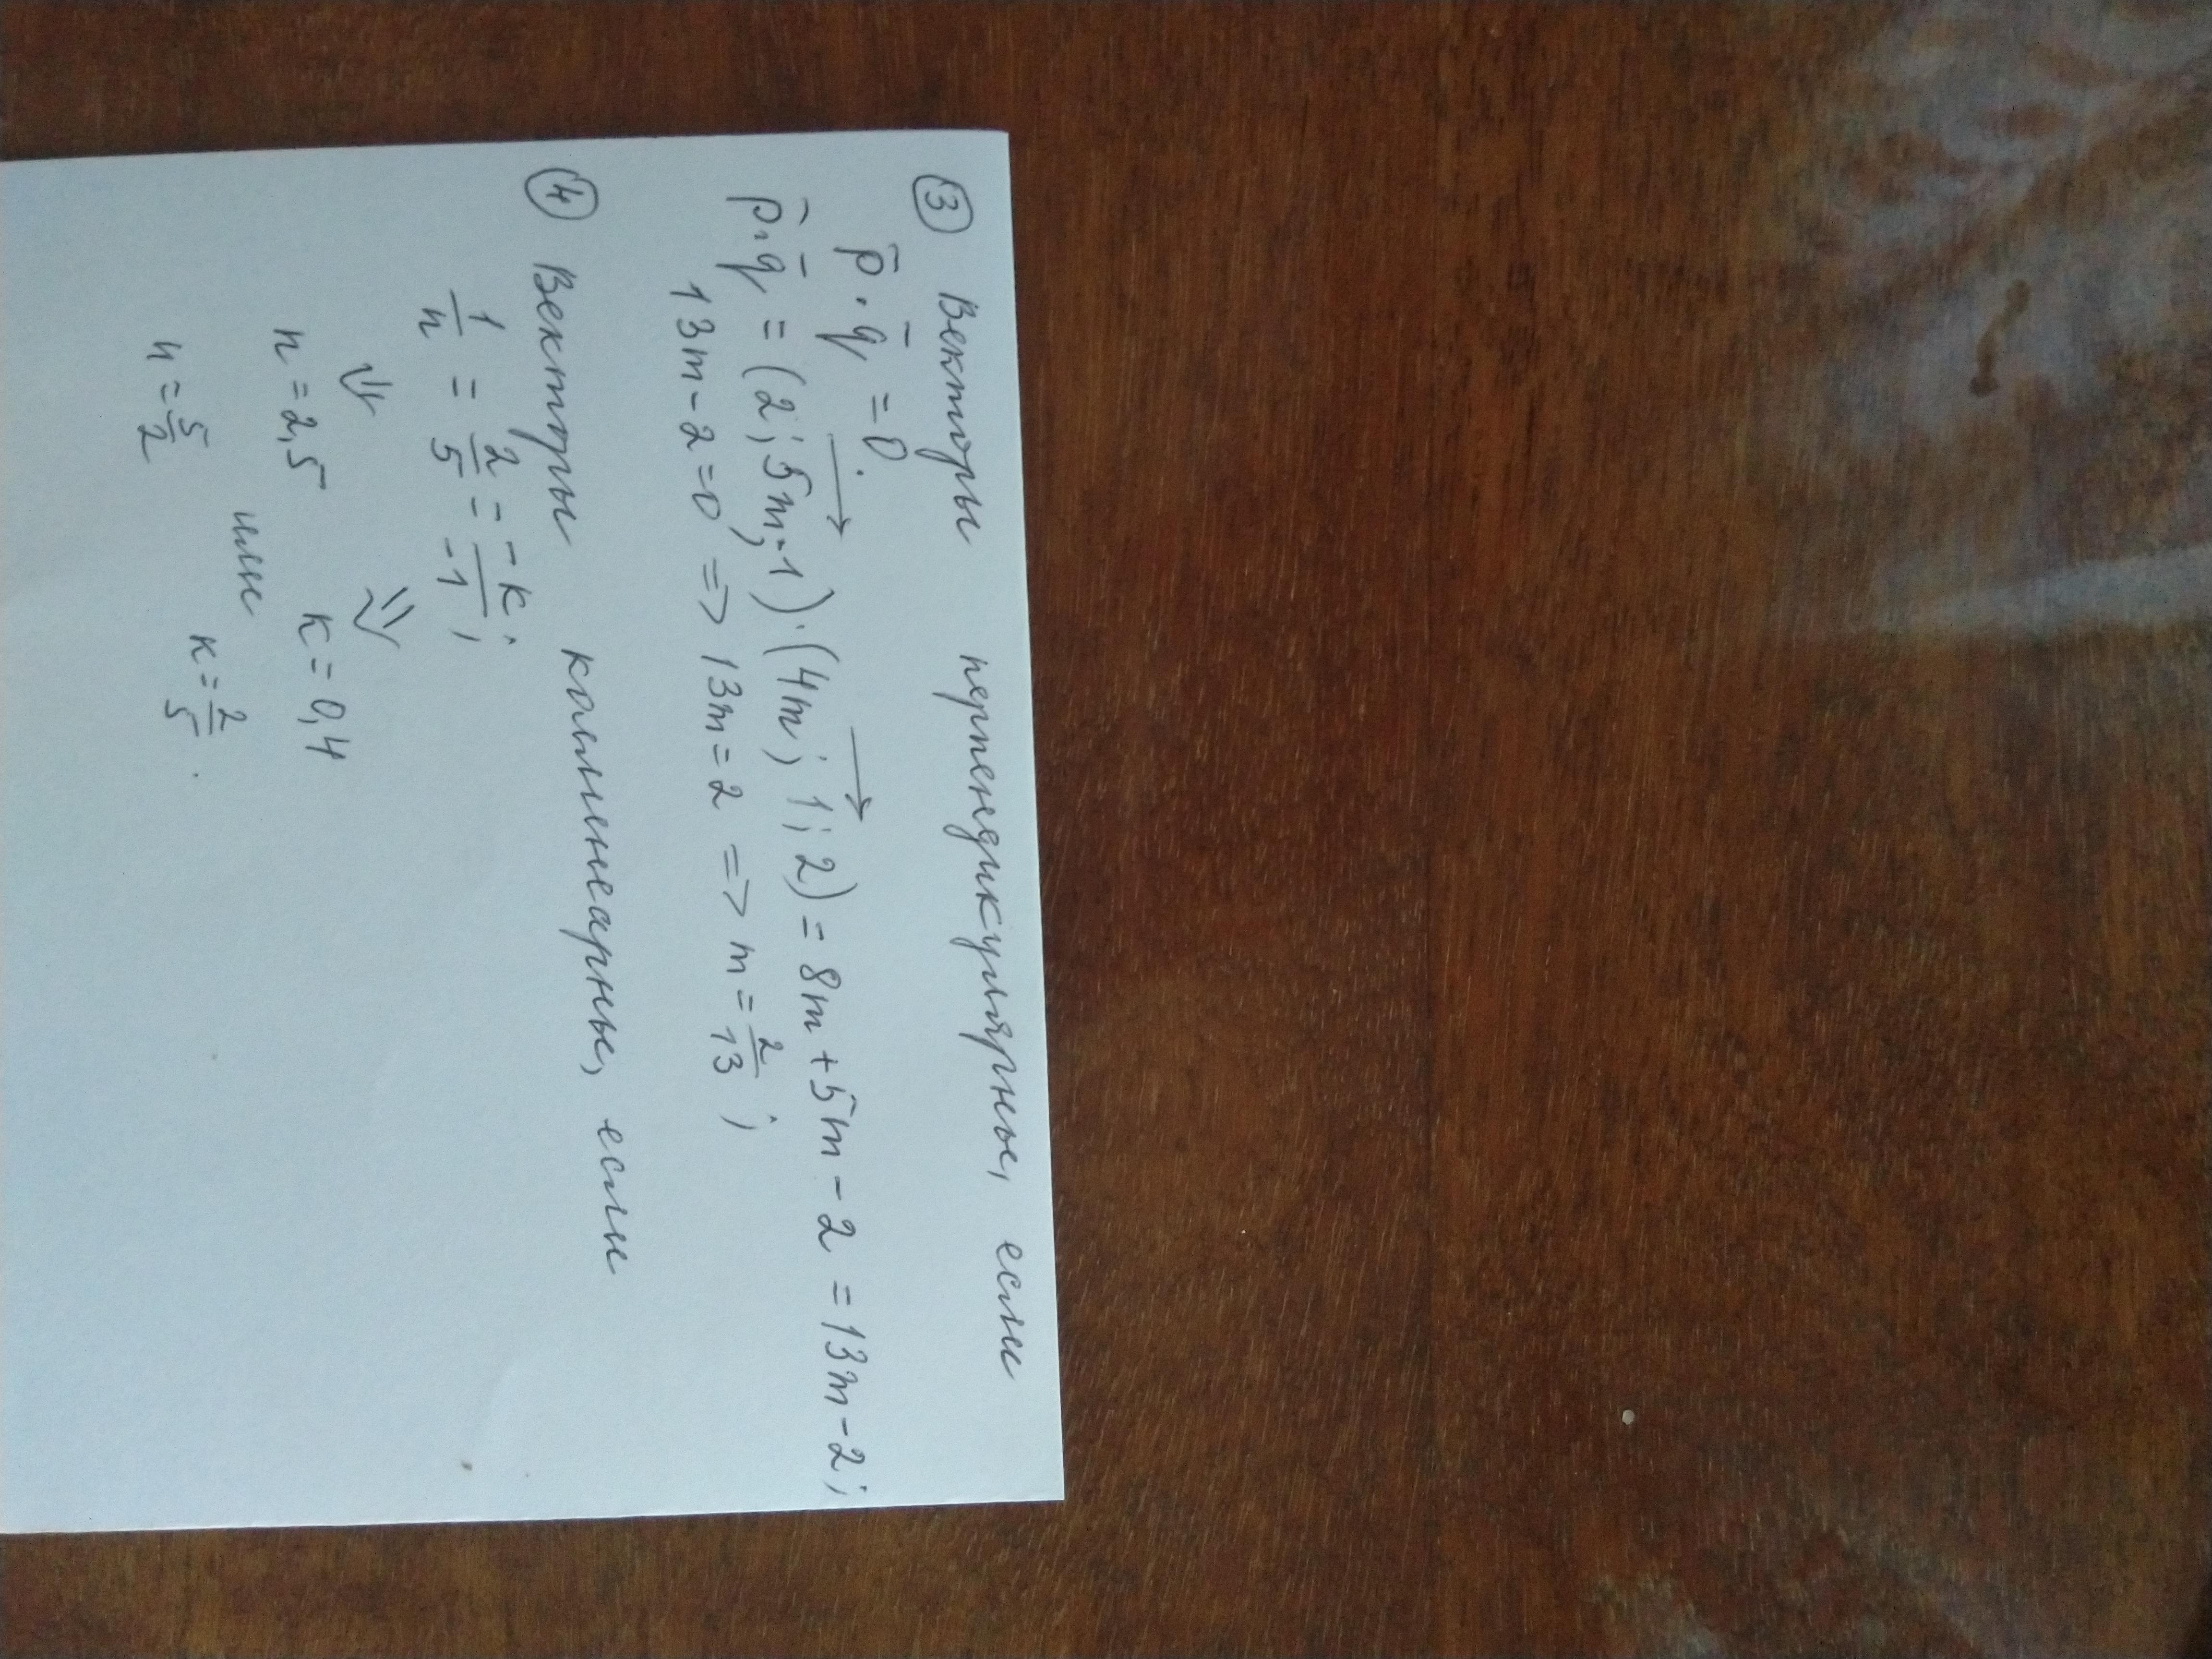 ③ Векторы перпендикулярные, если
p̄ · q̄ = 0.
p̄·q̄ = (2; 5m; -1)·(4m; 1; 2) = 8m + 5m - 2 = 13m - 2;
13m - 2 = 0 => 13m = 2 => m = 2/13;
④ Векторы коллинеарные, если
1/n = 2/5 = -k/-1;
⇓ ⇓
n = 2,5 k = 0,4
или
n = 5/2 k = 2/5.